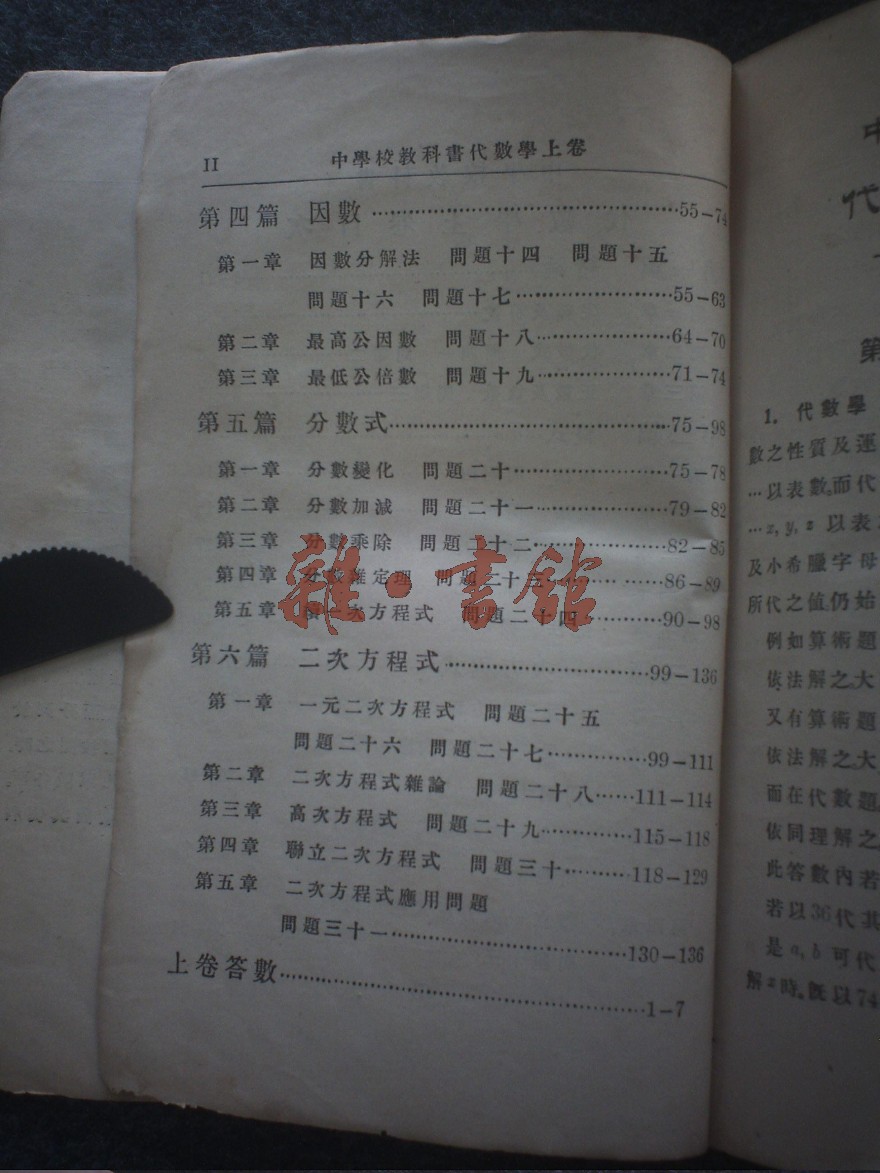 II 中學校教科書代數學上卷
第四篇 因數……………………55–74
第一章 因數分解法 問題十四 問題十五
問題十六 問題十七……………………55–63
第二章 最高公因數 問題十八……………………64–70
第三章 最低公倍數 問題十九……………………71–74
第五篇 分數式……………………75–98
第一章 分數變化 問題二十……………………75–78
第二章 分數加減 問題二十一……………………79–82
第三章 分數乘除 問題二十二……………………82–85
第四章 分數雜定理 問題二十三……………………86–89
第五章 續一次方程式 問題二十四……………………90–98
第六篇 二次方程式……………………99–136
第一章 一元二次方程式 問題二十五
問題二十六 問題二十七……………………99–111
第二章 二次方程式雜論 問題二十八……111–114
第三章 高次方程式 問題二十九……………………115–118
第四章 聯立二次方程式 問題三十…………118–129
第五章 二次方程式應用問題
問題三十一……………………130–136
上卷答數……………………1–7
雜·書館
中
代
第
1. 代數學
數之性質及運
…以表數。而代
…x, y, z 以表
及小希臘字母
所代之值仍始
例如算術題
依法解之大
又有算術題
依法解之大
而在代數題
依同理解之
此答數內若
若以36代其
是 a, b 可代
解 x 時。旣以74